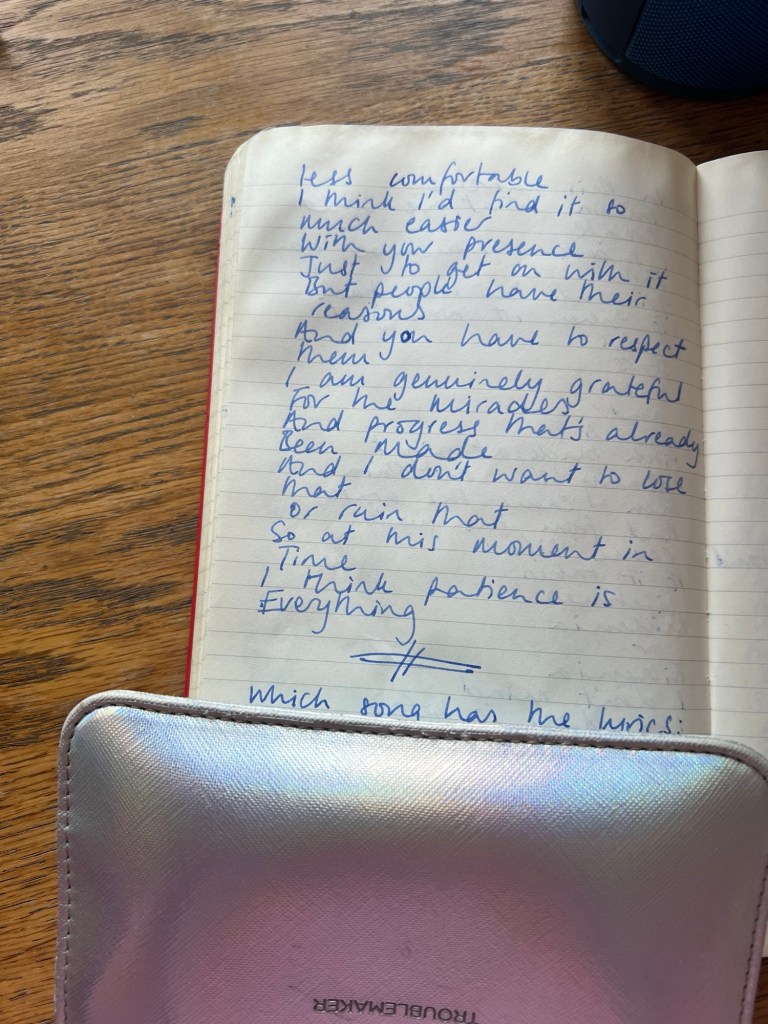 less comfortable
I think I'd find it so
much easier
With your presence
Just to get on with it
But people have their
reasons
And you have to respect
them
I am genuinely grateful
For the miracles
And progress that's already
Been made
And I don't want to lose
that
Or ruin that
So at this moment in
Time
I think patience is
Everything
Which song has the lyrics:
TROUBLEMAKER